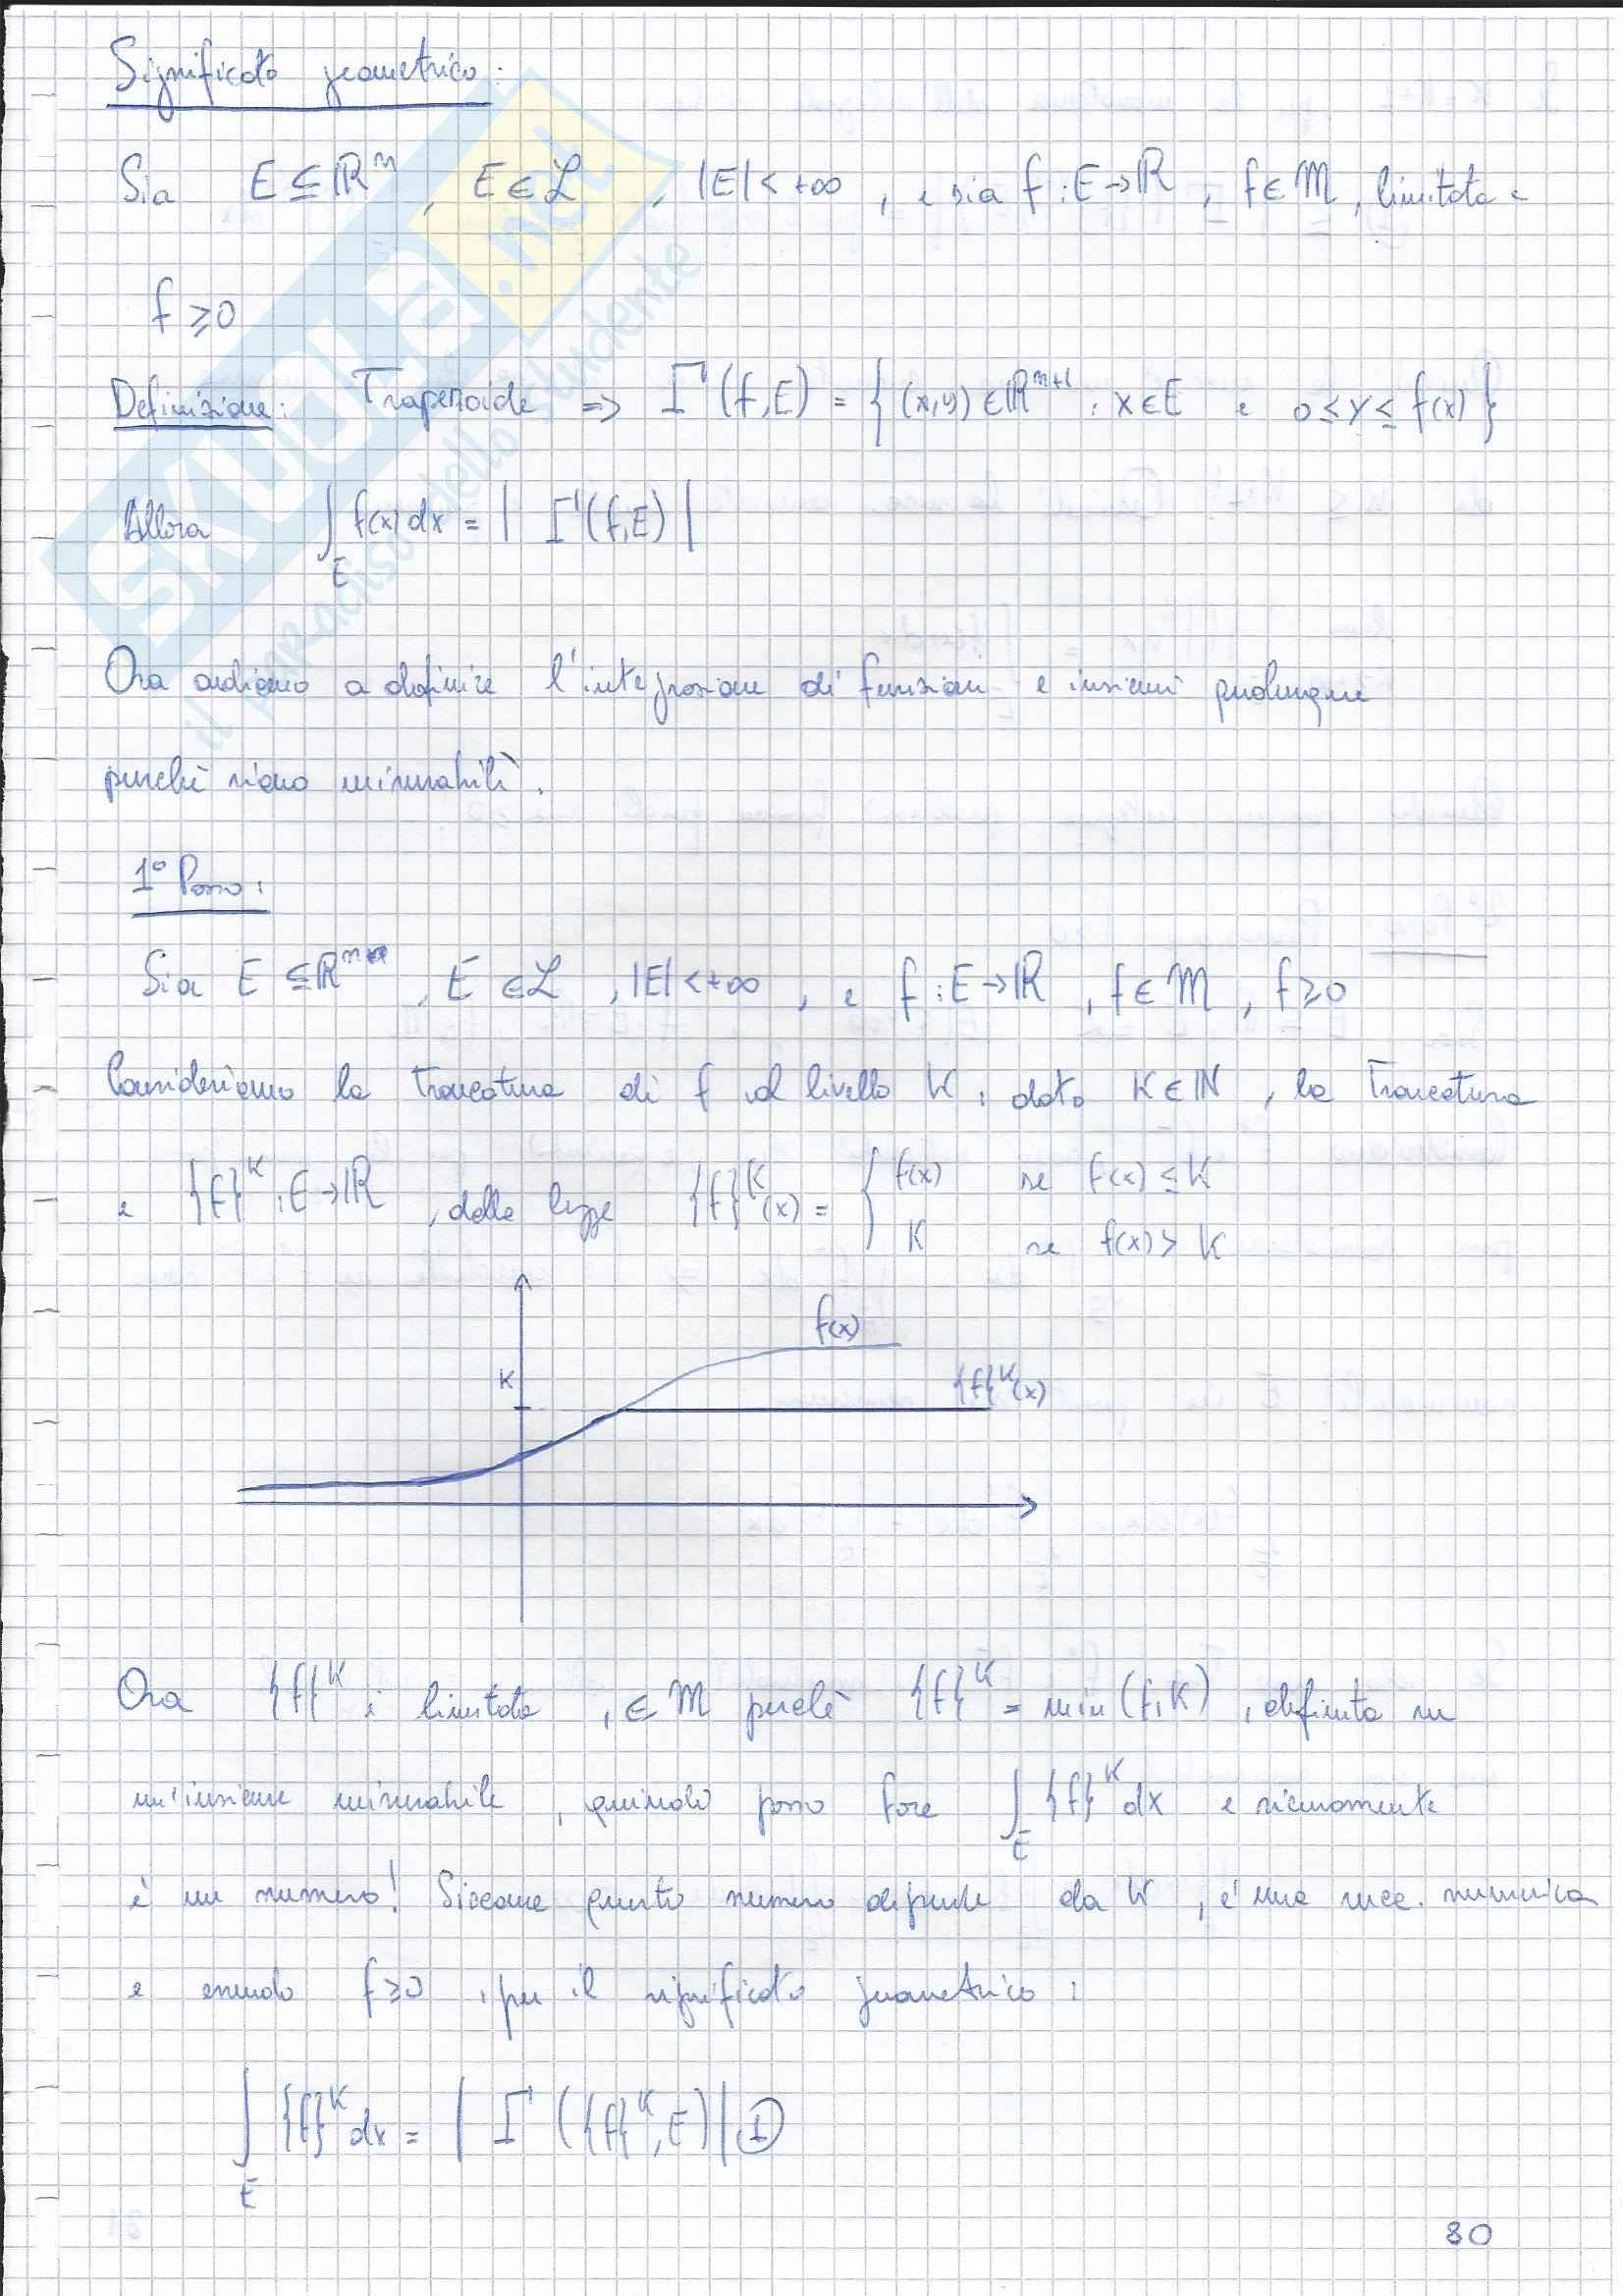 Significato geometrico:
Sia E ⊆ ℝⁿ, E ∈ ℒ, |E| < +∞, e sia f : E → ℝ, f ∈ M, limitata e
f ≥ 0
Definizione: Trapezoide => Γ(f,E) = { (x,y) ∈ ℝⁿ⁺¹ : x ∈ E e 0 ≤ y ≤ f(x) }
Allora ∫_E f(x) dx = | Γ(f,E) |
Ora andiamo a definire l'integrazione di funzioni e insiemi qualunque
purché siano misurabili.
1° Passo:
Sia E ⊆ ℝⁿ, E ∈ ℒ, |E| < +∞, e f : E → ℝ, f ∈ M, f ≥ 0
Consideriamo la troncatura di f al livello K: dato K ∈ ℕ, la troncatura
è {f}ᴷ : E → ℝ, dalla legge {f}ᴷ(x) = { f(x) se f(x) ≤ K
K se f(x) > K
f(x)
K
{f}ᴷ(x)
Ora {f}ᴷ è limitata, ∈ M perché {f}ᴷ = min(f,K), definita su
un'insieme misurabile, quindi posso fare ∫_E {f}ᴷ dx e sicuramente
è un numero! Siccome questo numero dipende da K, è una succ. numerica
e essendo f ≥ 0, per il significato geometrico:
∫_E {f}ᴷ dx = | Γ({f}ᴷ, E) | ①
80
SKUOLA.net
il paradiso dello studente